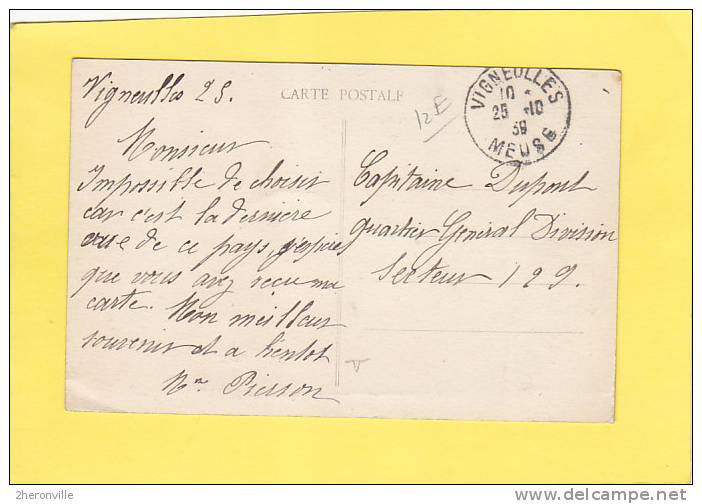 Vigneulles 25.
CARTE POSTALE
12E
VIGNEULLES
10 *
25 -10
39
MEUSE
Monsieur
Impossible de choisir
car c'est la dernière
vue de ce pays, j'espère
que vous avez recu ma
carte. Mon meilleur
souvenir et a bientot
Mme Pierson
Capitaine Dupont
quartier Général Division
Secteur 129.
2heronville
www.delcampe.net